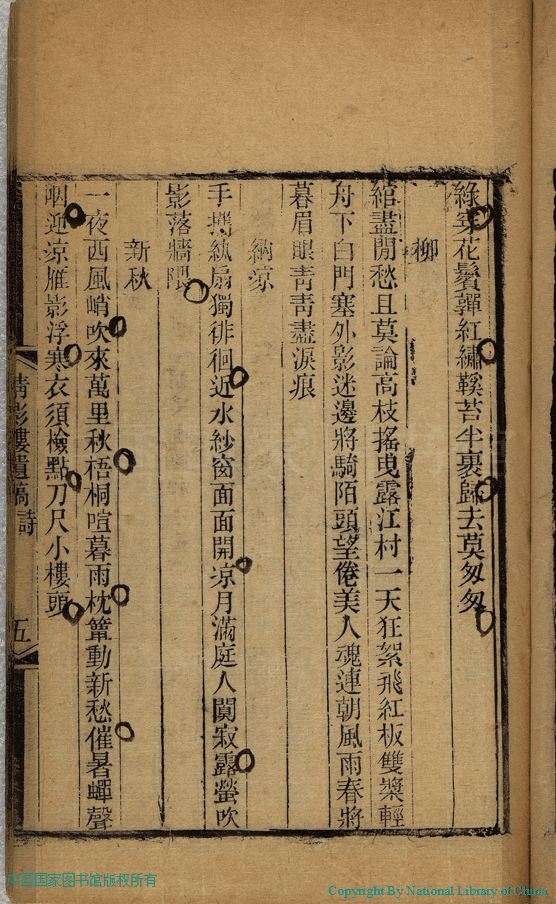 綠穿花鬢嚲紅繡鞵苔半裹歸去莫匆匆
柳
綰盡閒愁且莫論高枝搖曳露江村一天狂絮飛紅板雙槳輕
舟下白門塞外影迷邊將騎陌頭望倦美人魂連朝風雨春將
暮眉眼靑靑盡淚痕
納涼
手攜紈扇獨徘徊近水紗窗面面開凉月滿庭人闃寂露螢吹
影落牆隈
新秋
一夜西風峭吹來萬里秋梧桐喧暮雨枕簟動新愁催暑蟬聲
咽迎凉雁影浮寒衣須檢點刀尺小樓頭
清影樓遺稿 詩
五
中國国家图书馆版权所有
Copyright By National Library of China.